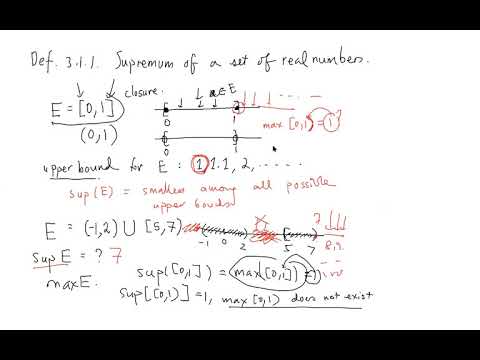 Def. 3.1.1. Supremum of a set of real numbers.
closure. x∈E
E = [0,1]
0 1
max [0,1) = 1
(0,1)
0 1
upper bound for E : 1, 1.1, 2, .....
sup(E) = smallest among all possible
upper bounds
E = (-1,2) U [5,7)
-1 0 2 5 7
7
sup E = ? 7
max E.
sup([0,1]) = max([0,1]) = 1
sup([0,1)) = 1, max [0,1) does not exist